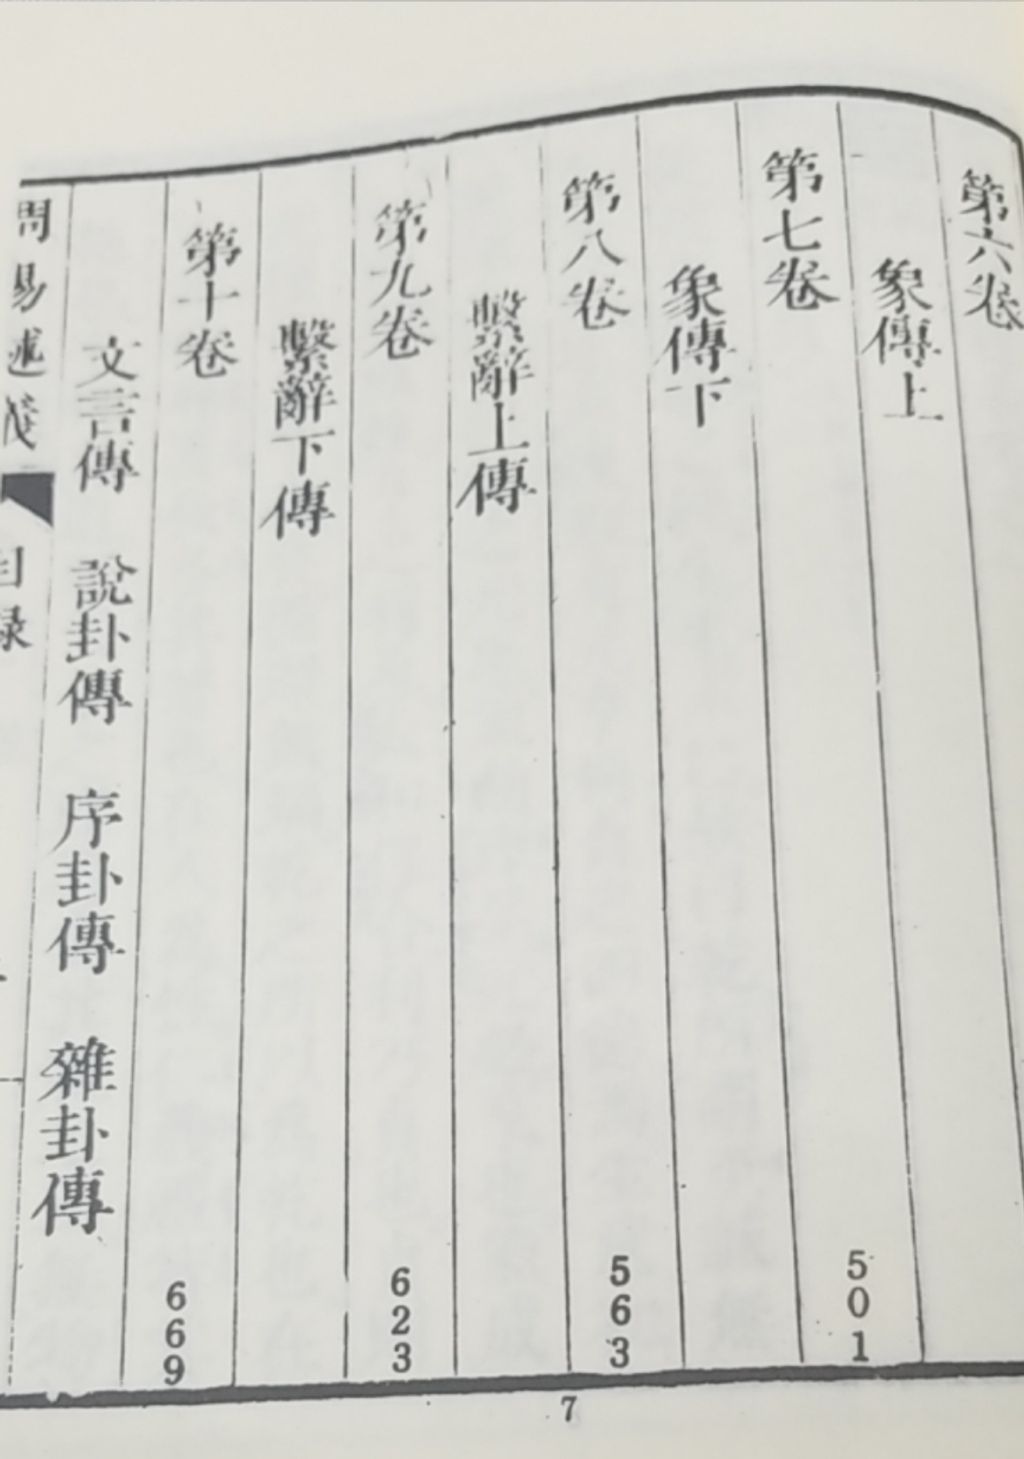 第六卷
象傳上
第七卷
501
象傳下
第八卷
563
繫辭上傳
第九卷
623
繫辭下傳
第十卷
669
文言傳 說卦傳 序卦傳 雜卦傳
周易述義
目録
7